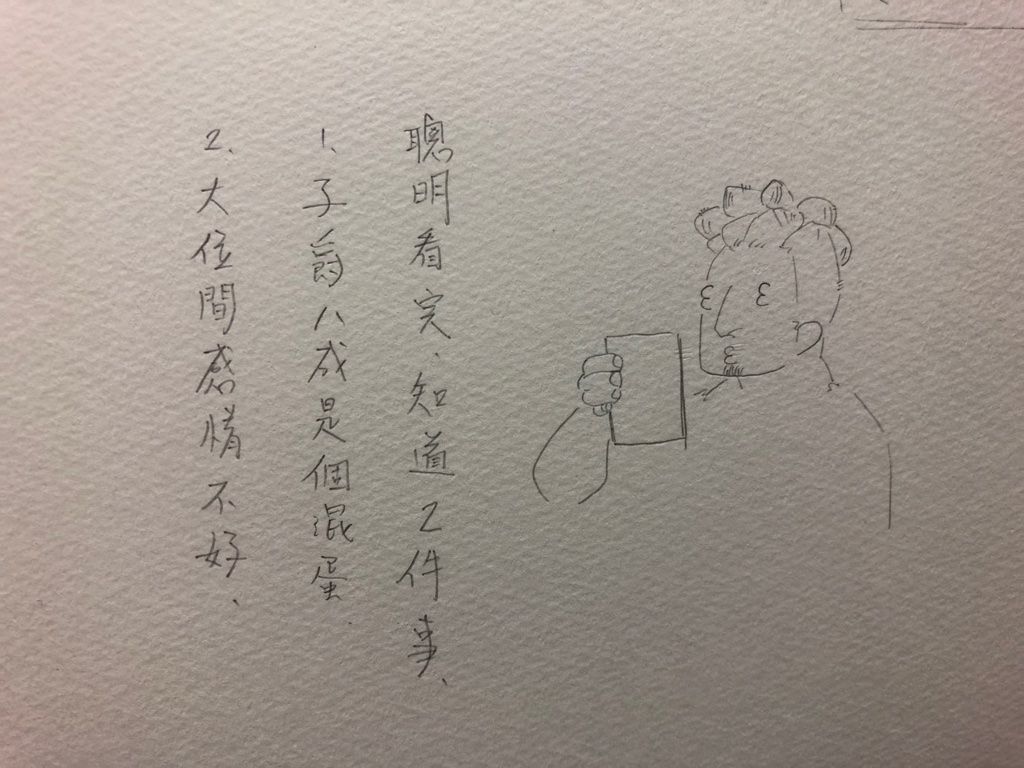 聰明看完、知道2件事、
1、子爵八成是個混蛋.
2、大位間感情不好、